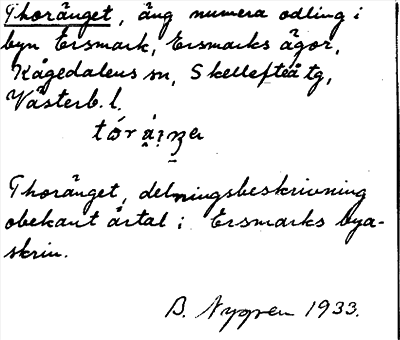 Thoränget, äng numera odling i
byn Ersmark, Ersmarks ägor,
Kågedalens sn, Skellefteå tg,
Västerb. l.
Thoränget, delningsbeskrivning
obekant årtal i Ersmarks bya-
skrin.
B. Nygren 1933.